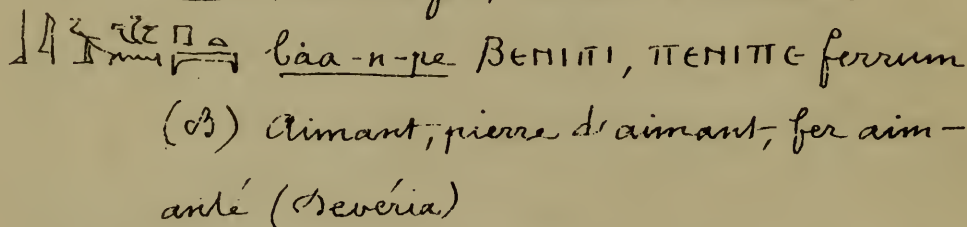 bàa-n-pe ⲂⲈⲚⲒⲠⲒ, ⲠⲈⲚⲒⲠⲈ ferrum
(B) Aimant, pierre d'aimant, fer aim-
anté (Devéria)